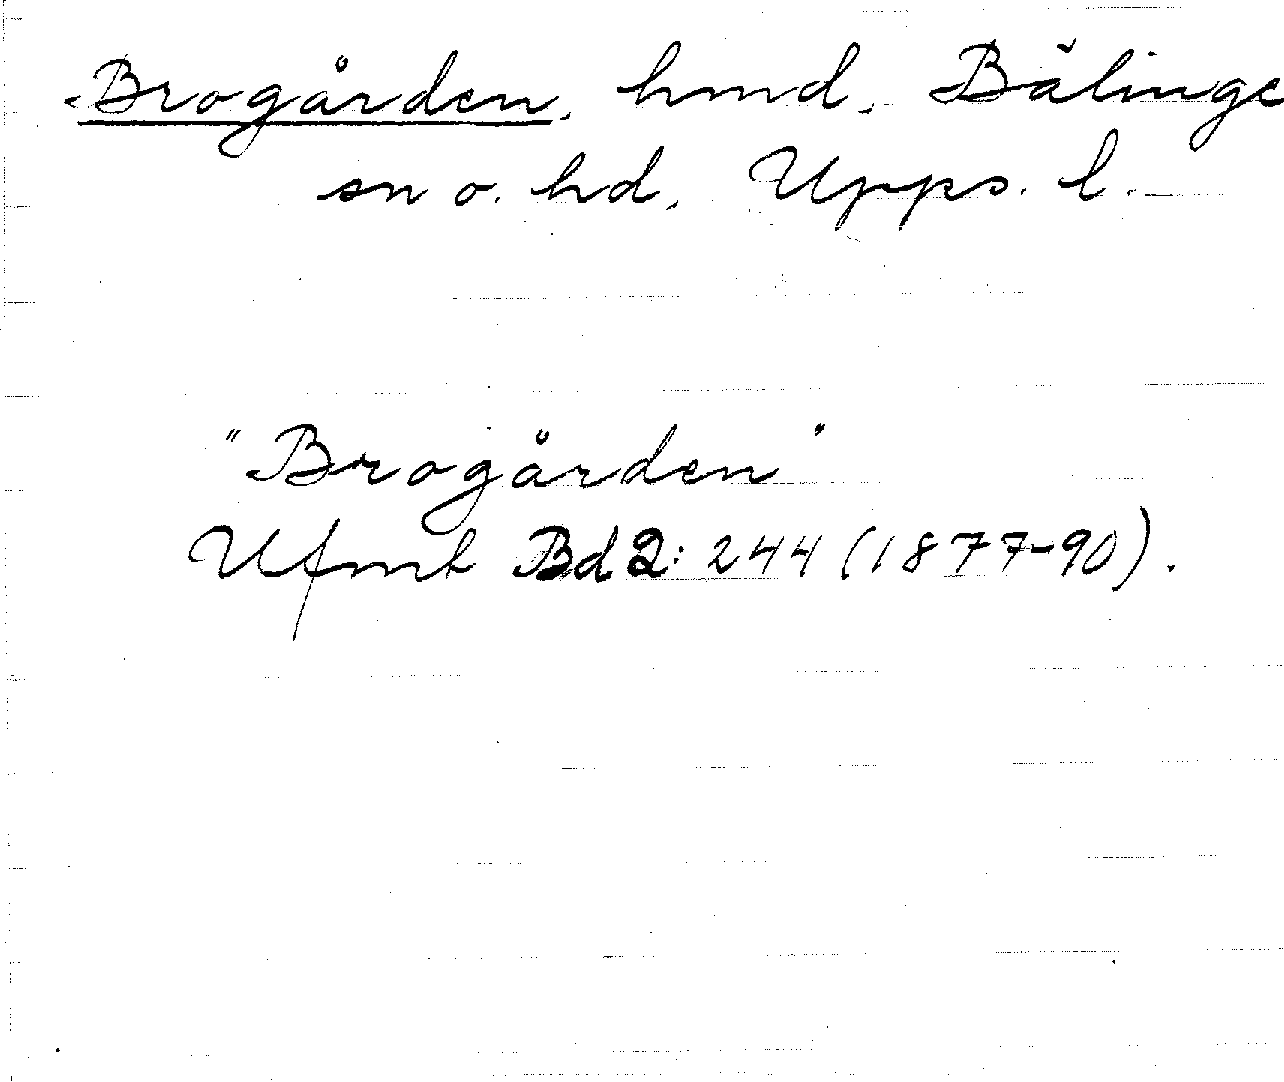 Brogården, hmd, Bälinge
sn o. hd, Upps. l.
"Brogården"
Ufmt Bd2: 244 (1877-90).